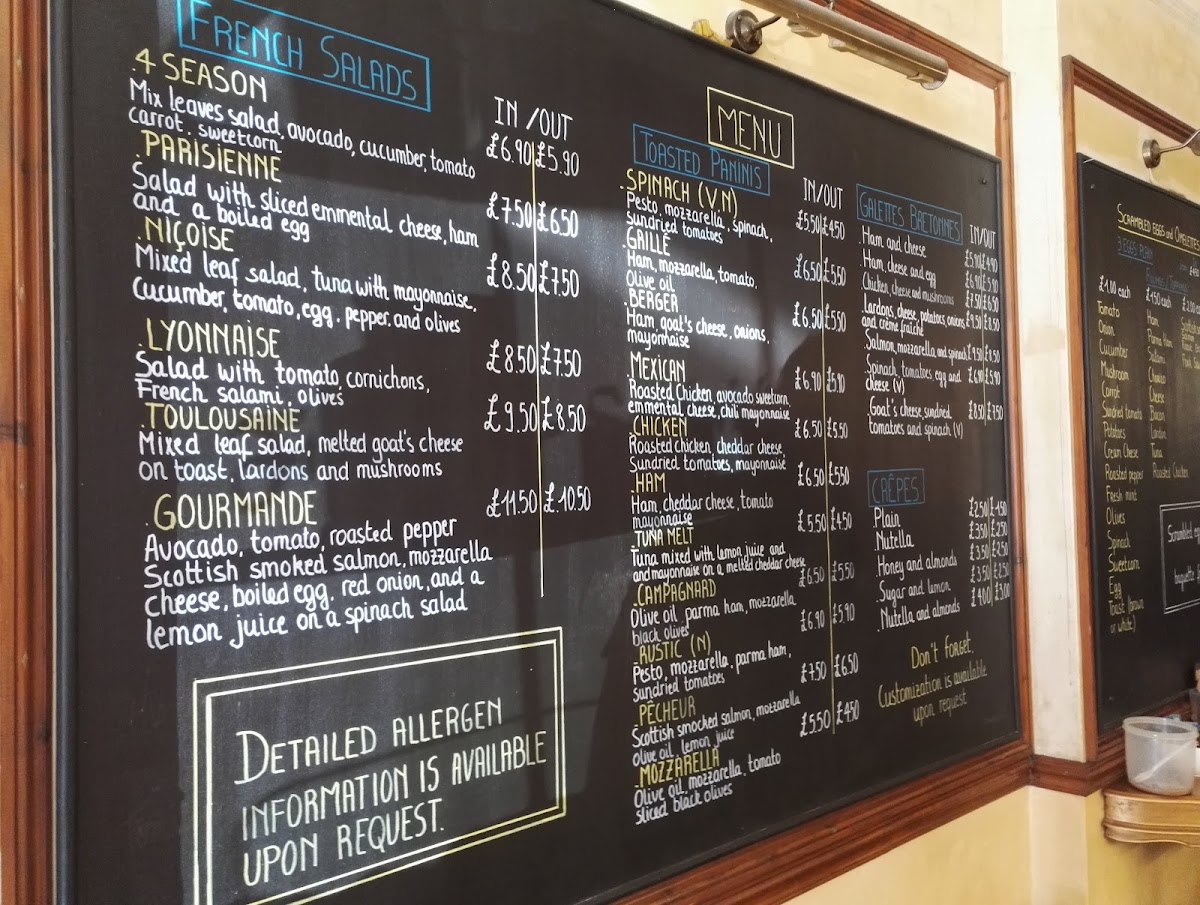 FRENCH SALADS
IN /OUT
4 SEASON
Mix leaves salad, avocado, cucumber, tomato
carrot. sweetcorn
£6.90 £5.90
.PARISIENNE
Salad with sliced emmental cheese, ham
and a boiled egg
£7.50 £6.50
.NIÇOISE
Mixed leaf salad, tuna with mayonnaise,
cucumber, tomato, egg. pepper. and olives
£8.50 £7.50
.LYONNAISE
Salad with tomato, cornichons,
French salami, olives
£8.50 £7.50
.TOULOUSAINE
Mixed leaf salad, melted goat's cheese
on toast, lardons and mushrooms
£9.50 £8.50
.GOURMANDE
Avocado, tomato, roasted pepper
Scottish smoked salmon, mozzarella
cheese, boiled egg, red onion, and a
lemon juice on a spinach salad
£11.50 £.10.50
DETAILED ALLERGEN
INFORMATION IS AVAILABLE
UPON REQUEST.
MENU
TOASTED PANINIS
IN/OUT
.SPINACH (V,N)
Pesto, mozzarella, spinach,
sundried tomatoes
£5.50 £4.50
.GRILLÉ
Ham, mozzarella, tomato,
Olive oil
£6.50 £5.50
.BERGER
Ham, goat's cheese, onions,
mayonnaise
£6.50 £5.50
.MEXICAN
Roasted Chicken, avocado sweetcorn
emmental cheese, chili mayonnaise
£6.90 £5.90
.CHICKEN
Roasted chicken, cheddar cheese,
Sundried tomatoes, mayonnaise
£6.50 £5.50
.HAM
Ham, cheddar cheese, tomato
mayonnaise
£6.50 £5.50
.TUNA MELT
Tuna mixed with lemon juice and
and mayonnaise on a melted cheddar cheese
£5.50 £4.50
.CAMPAGNARD
Olive oil, parma ham, mozzarella
black olives
£6.50 £5.50
.RUSTIC (N)
Pesto, mozzarella, parma ham,
sundried tomatoes
£6.90 £5.90
.PÊCHEUR
Scottish smocked salmon, mozzarella
olive oil, lemon juice
£7.50 £6.50
.MOZZARELLA
Olive oil, mozzarella, tomato
sliced black olives
£5.50 £4.50
GALETTES BRETONNES
IN/OUT
Ham and cheese £5.90 £4.90
Ham, cheese and egg £6.90 £5.90
Chicken, cheese and mushrooms £7.50 £6.50
Lardons, cheese, potatoes, onions
and crème fraîche £9.50 £8.50
Salmon, mozzarella and spinach £9.50 £8.50
Spinach, tomatoes, egg and
cheese (V) £6.90 £5.90
.Goat's cheese, sundried
tomatoes and spinach (V) £8.50 £7.50
CRÊPES
Plain £2.50 £1.50
.Nutella £3.50 £2.50
.Honey and almonds £3.50 £2.50
.Sugar and lemon £3.50 £2.50
.Nutella and almonds £4.00 £3.00
Don't forget,
Customization is available
upon request.
SCRAMBLED EGGS and OMELETTES
3 EGGS PLAIN
£1.00 each
Tomato
Onion
Cucumber
Mushroom
Carrot
Sundried tomato
Potatoes
Cream Cheese
Roasted pepper
Fresh mint
Olives
Spinach
Sweetcorn
Egg
Toast (brown
or white)
£1.50 each
Ham
Parma Ham
Salami
Chorizo
Cheese
Bacon
Lardon
Tuna
Roasted Chicken
£2.00
Scrambled
baguette